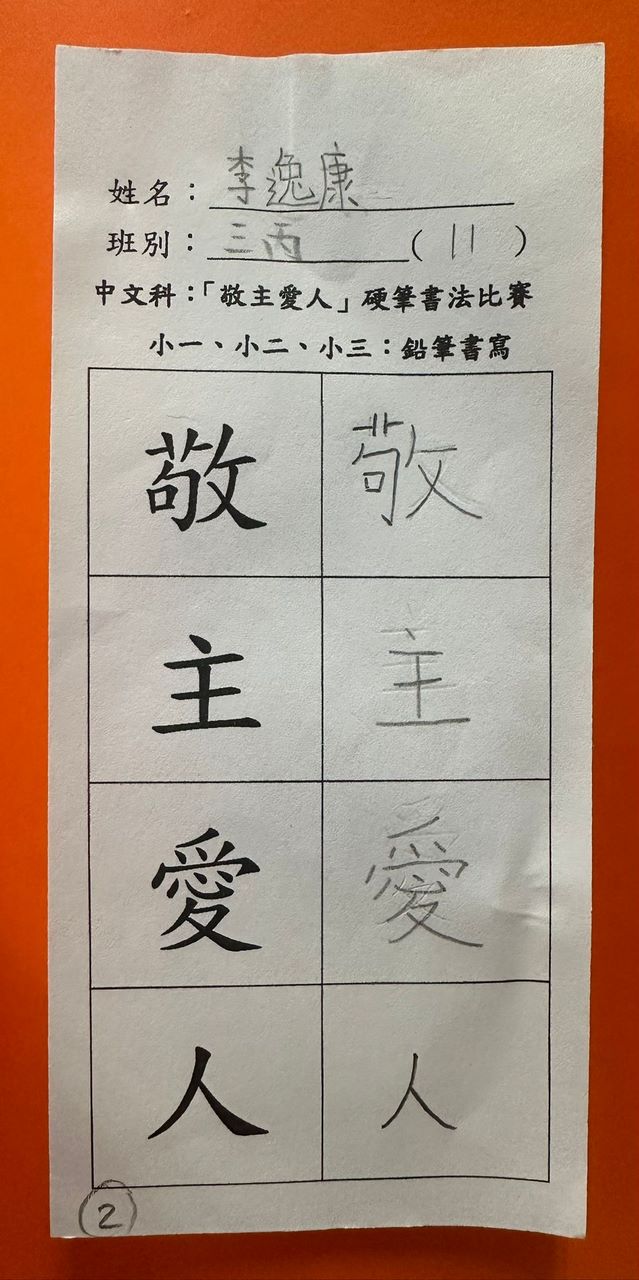 姓名：李逸康
班別：三丙（11）
中文科：「敬主愛人」硬筆書法比賽
小一、小二、小三：鉛筆書寫
敬 敬
主 主
愛 愛
人 人
2